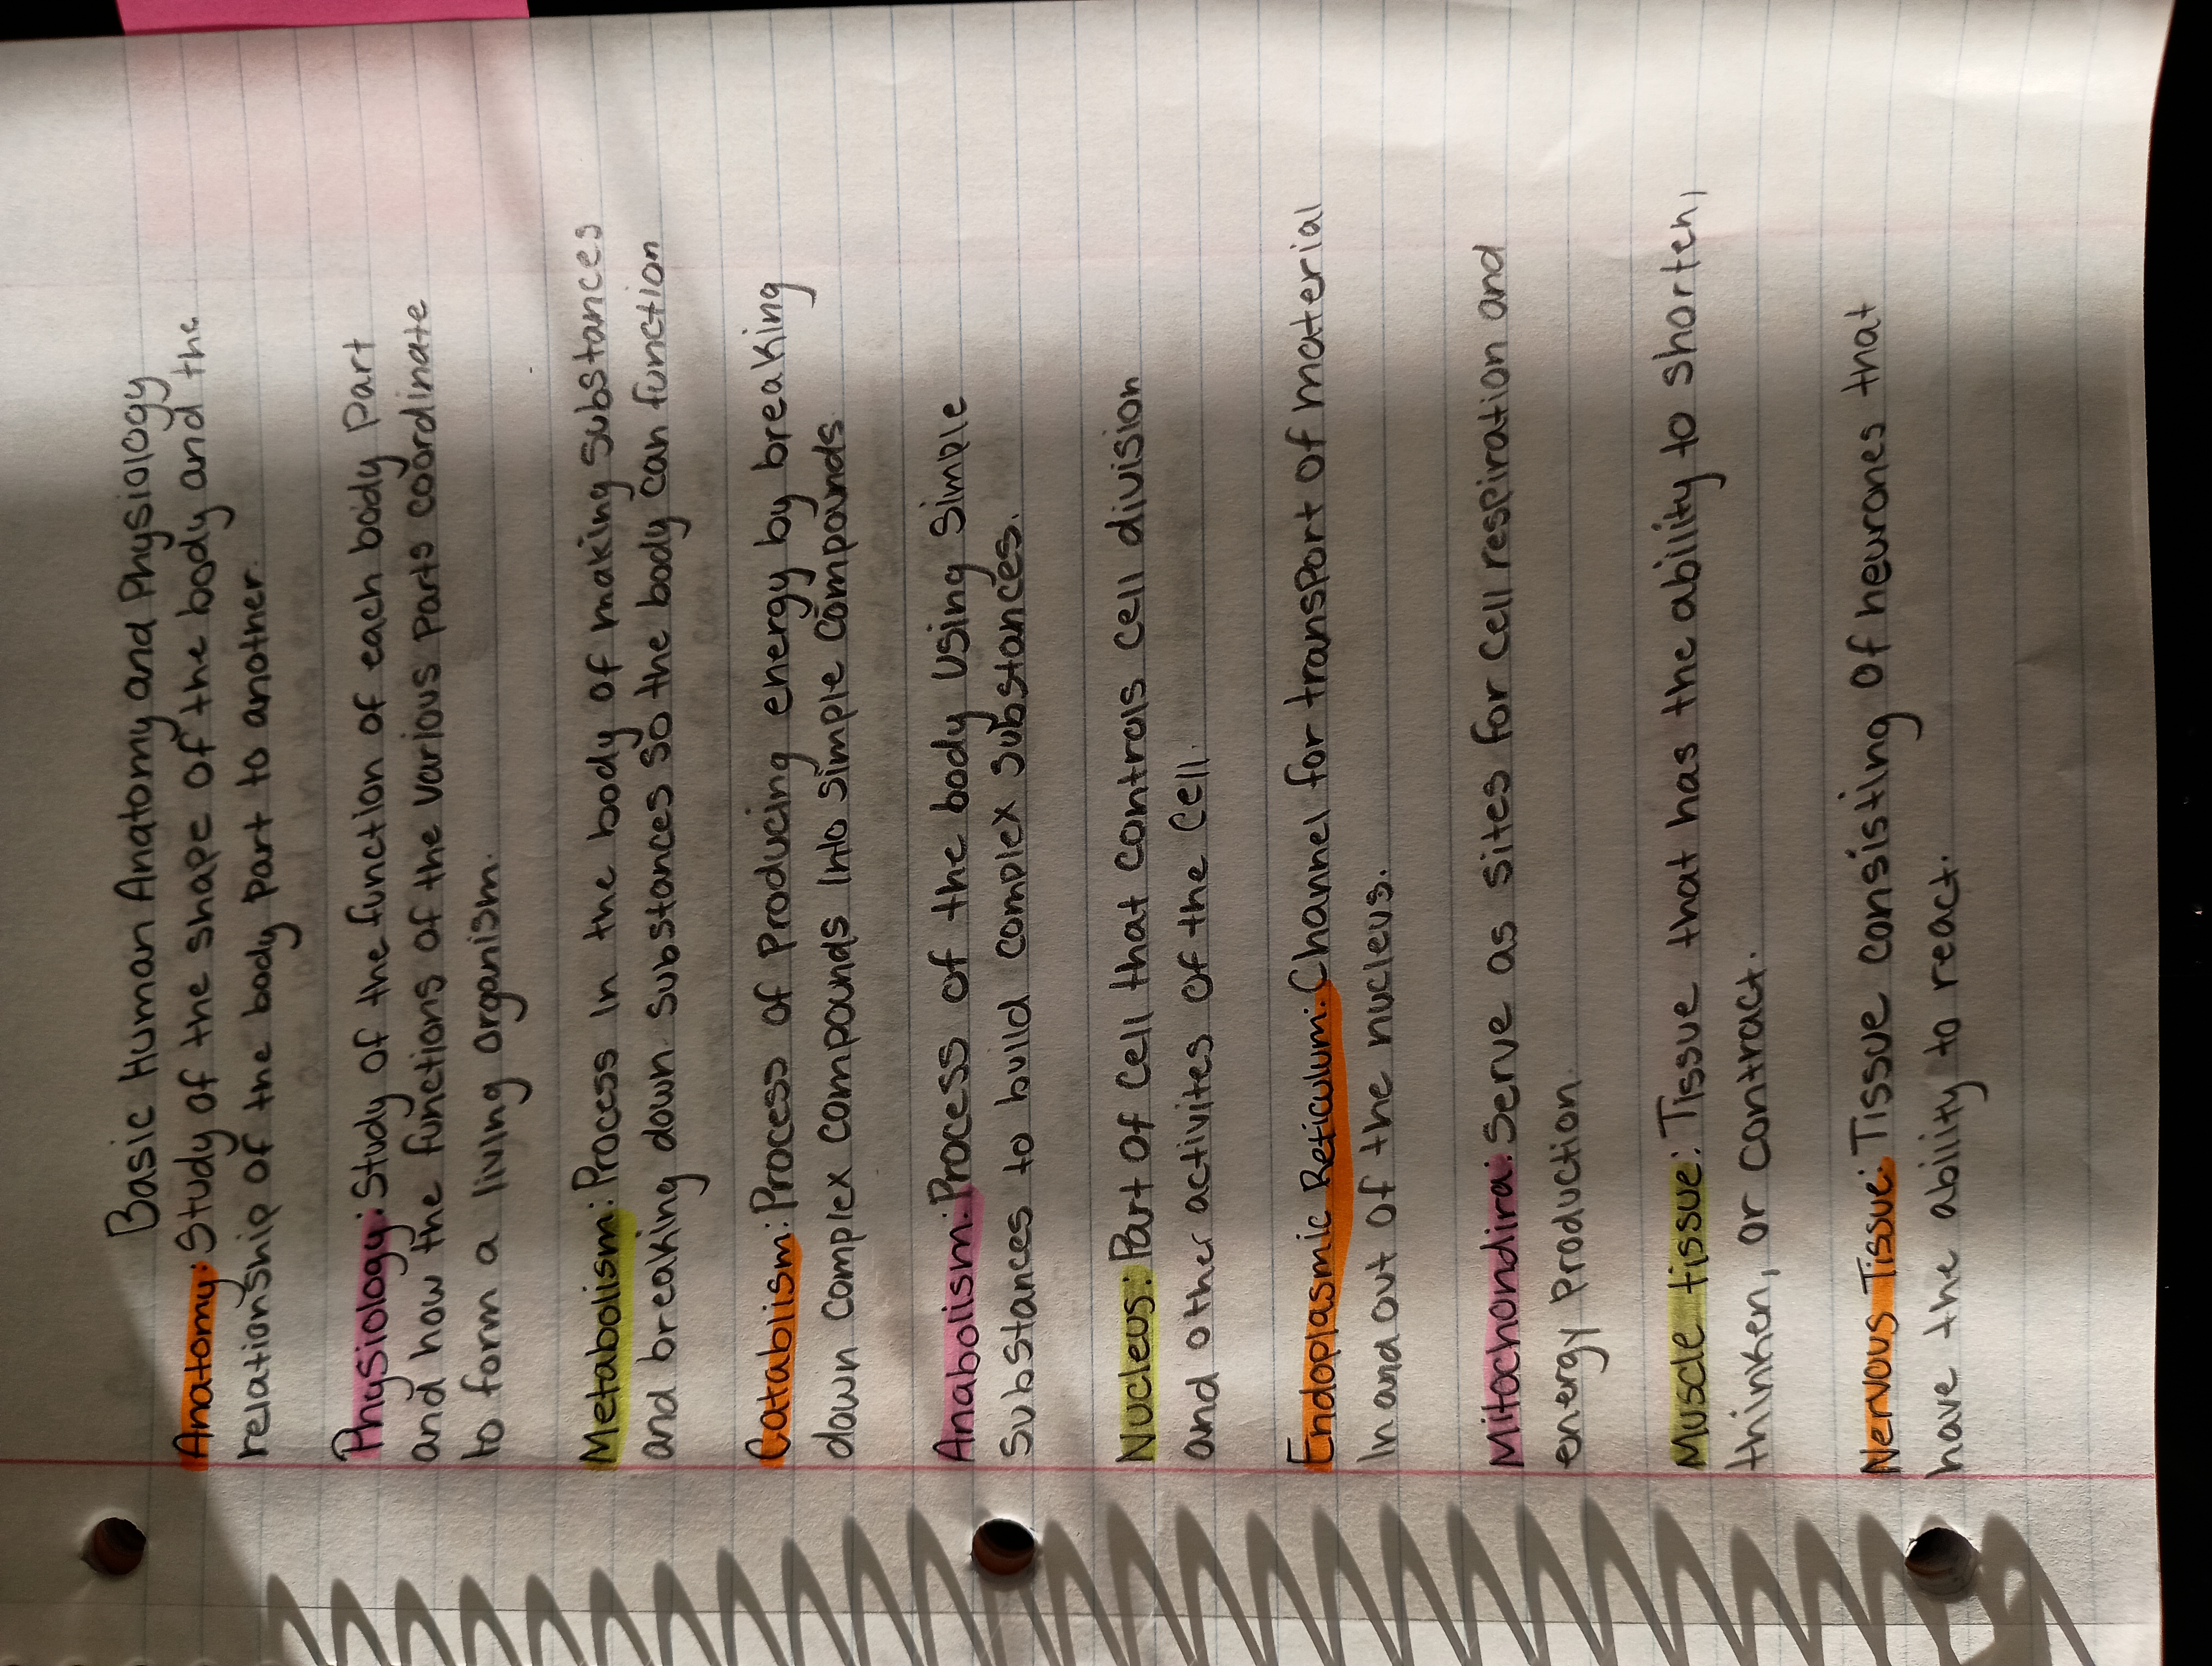 Basic Human Anatomy and Physiology
Anatomy: Study of the shape of the body and the
relationship of the body part to another.
Physiology: Study of the function of each body part
and how the functions of the various parts coordinate
to form a living organism.
Metabolism: Process in the body of making substances
and breaking down substances so the body can function
Catablism: Process of Producing energy by breaking
down complex compounds into simple compounds
Anabolism: Process of the body using simple
substances to build complex substances.
Nucleus: Part of cell that controls cell division
and other activites of the cell.
Endoplasmic Reticulum: Channel for transport of material
In and out of the nucleus.
Mitochondira: Serve as sites for cell respiration and
energy production.
Muscle tissue: Tissue that has the ability to shorten,
thinken, or contract.
Nervous Tissue: Tissue consisting of neurones that
have the ability to react.